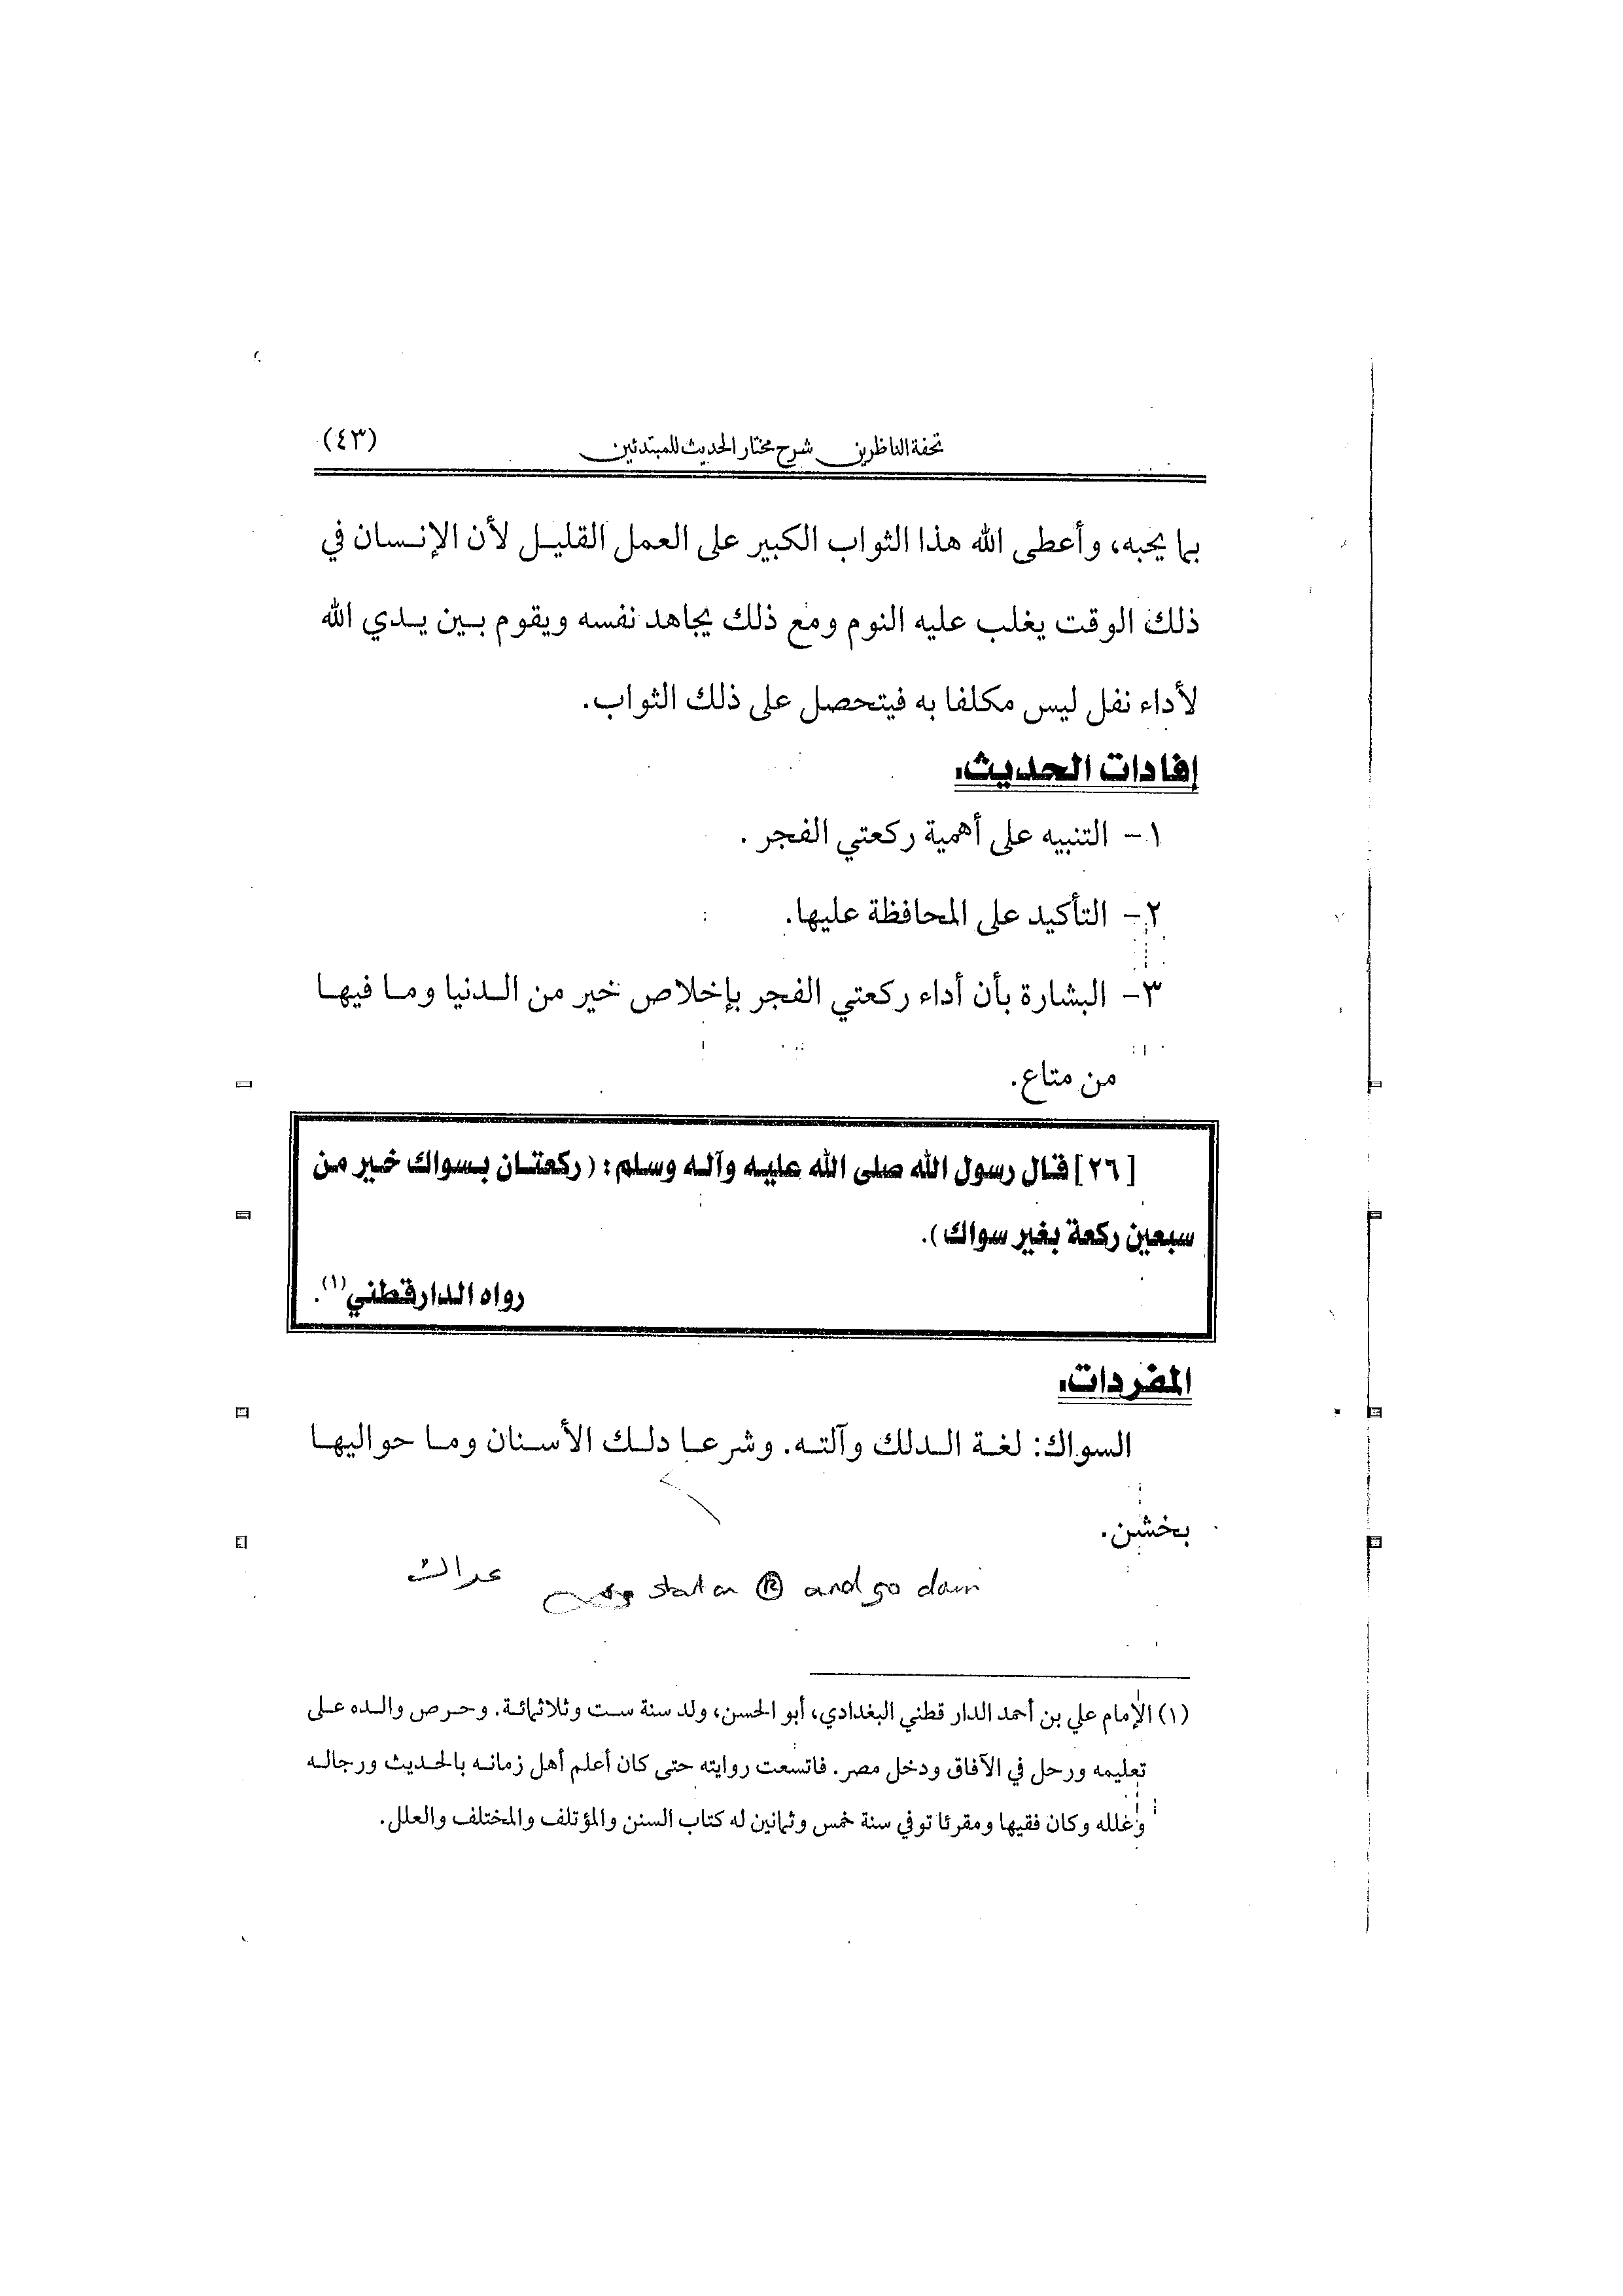 تحفة الناظرين شرح مختار الحديث للمبتدئين (٤٣)
بما يحبه، وأعطى الله هذا الثواب الكبير على العمل القليل لأن الإنسان في
ذلك الوقت يغلب عليه النوم ومع ذلك يجاهد نفسه ويقوم بين يدي الله
لأداء نفل ليس مكلفا به فيتحصل على ذلك الثواب.
إفادات الحديث:
١- التنبيه على أهمية ركعتي الفجر .
٢- التأكيد على المحافظة عليها.
٣- البشارة بأن أداء ركعتي الفجر بإخلاص خير من الدنيا وما فيها
من متاع.
[٢٦] قال رسول الله صلى الله عليه وآله وسلم: (ركعتان بسواك خير من
سبعين ركعة بغير سواك).
رواه الدارقطني(١).
المفردات:
السواك: لغة الدلك وآلته. وشرعا دلك الأسنان وما حواليها
بخشن.
start on R and go down
(١) الإمام علي بن أحمد الدار قطني البغدادي، أبو الحسن، ولد سنة ست وثلاثمائة. وحرص والده على
تعليمه ورحل في الآفاق ودخل مصر. فاتسعت روايته حتى كان أعلم أهل زمانه بالحديث ورجاله
وعلله وكان فقيها ومقرئا توفي سنة خمس وثمانين له كتاب السنن والمؤتلف والمختلف والعلل.